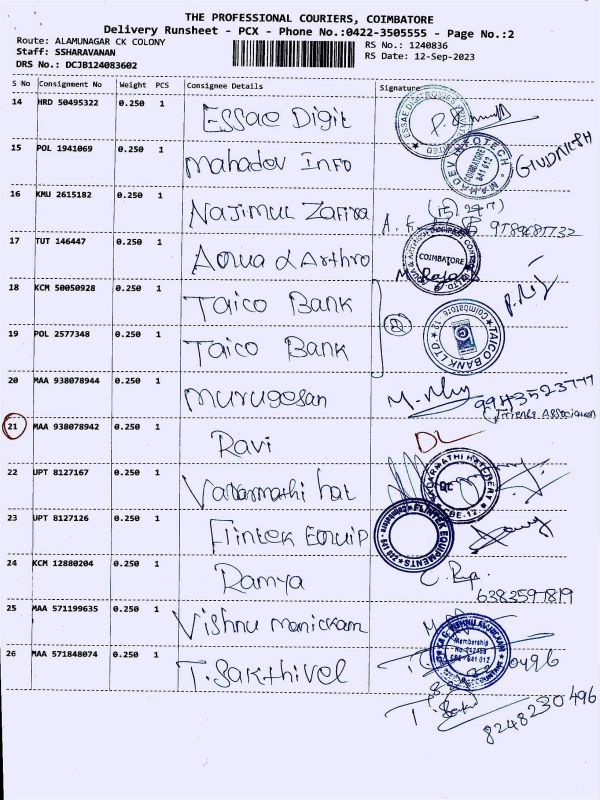 THE PROFESSIONAL COURIERS, COIMBATORE
Delivery Runsheet - PCX - Phone No.:0422-3505555 - Page No.:2
Route: ALAMUNAGAR CK COLONY
RS No.: 1240836
Staff: SSHARAVANAN
RS Date: 12-Sep-2023
DRS No.: DCJB124083602
S No Consignment No Weight PCS Consignee Details Signature
14 HRD 50495322 0.250 1 Essae Digit
15 POL 1941069 0.250 1 Mahadev Info
16 KMU 2615182 0.250 1 Najimul Zafira
17 TUT 146447 0.250 1 Aqua & Arthro COIMBATORE M. Raja
18 KCM 50050928 0.250 1 Taico Bank
19 POL 2577348 0.250 1 Taico Bank TAICO BANK LTD
20 MAA 938078944 0.250 1 Murugesan
21 MAA 938078942 0.250 1 Ravi DL
22 UPT 8127167 0.250 1 Vadarmathi hat
23 UPT 8127126 0.250 1 Flintek Equip FLINTEK EQUIPMENTS
24 KCM 12880204 0.250 1 Ramya
6383597819
25 MAA 571199635 0.250 1 Vishnu Manickam
Membership
26 MAA 571848074 0.250 1 T. Sakthivel
8248230496